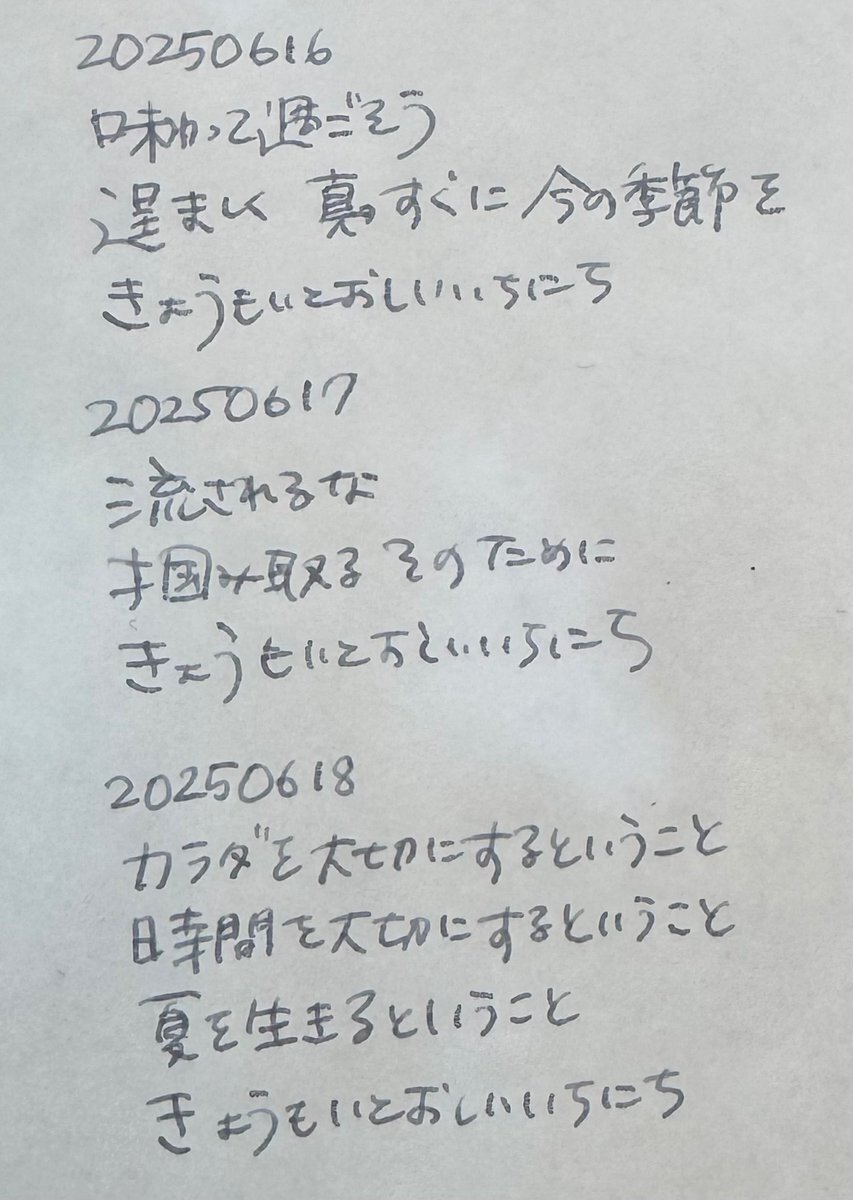 20250616
味わって過ごそう
逞ましく 真すぐに 今の季節を
きょうもいとおしいいちにち
20250617
流されるな
掴み取る そのために
きょうもいとおしいいちにち
20250618
カラダを大切にするということ
時間を大切にするということ
夏を生きるということ
きょうもいとおしいいちにち